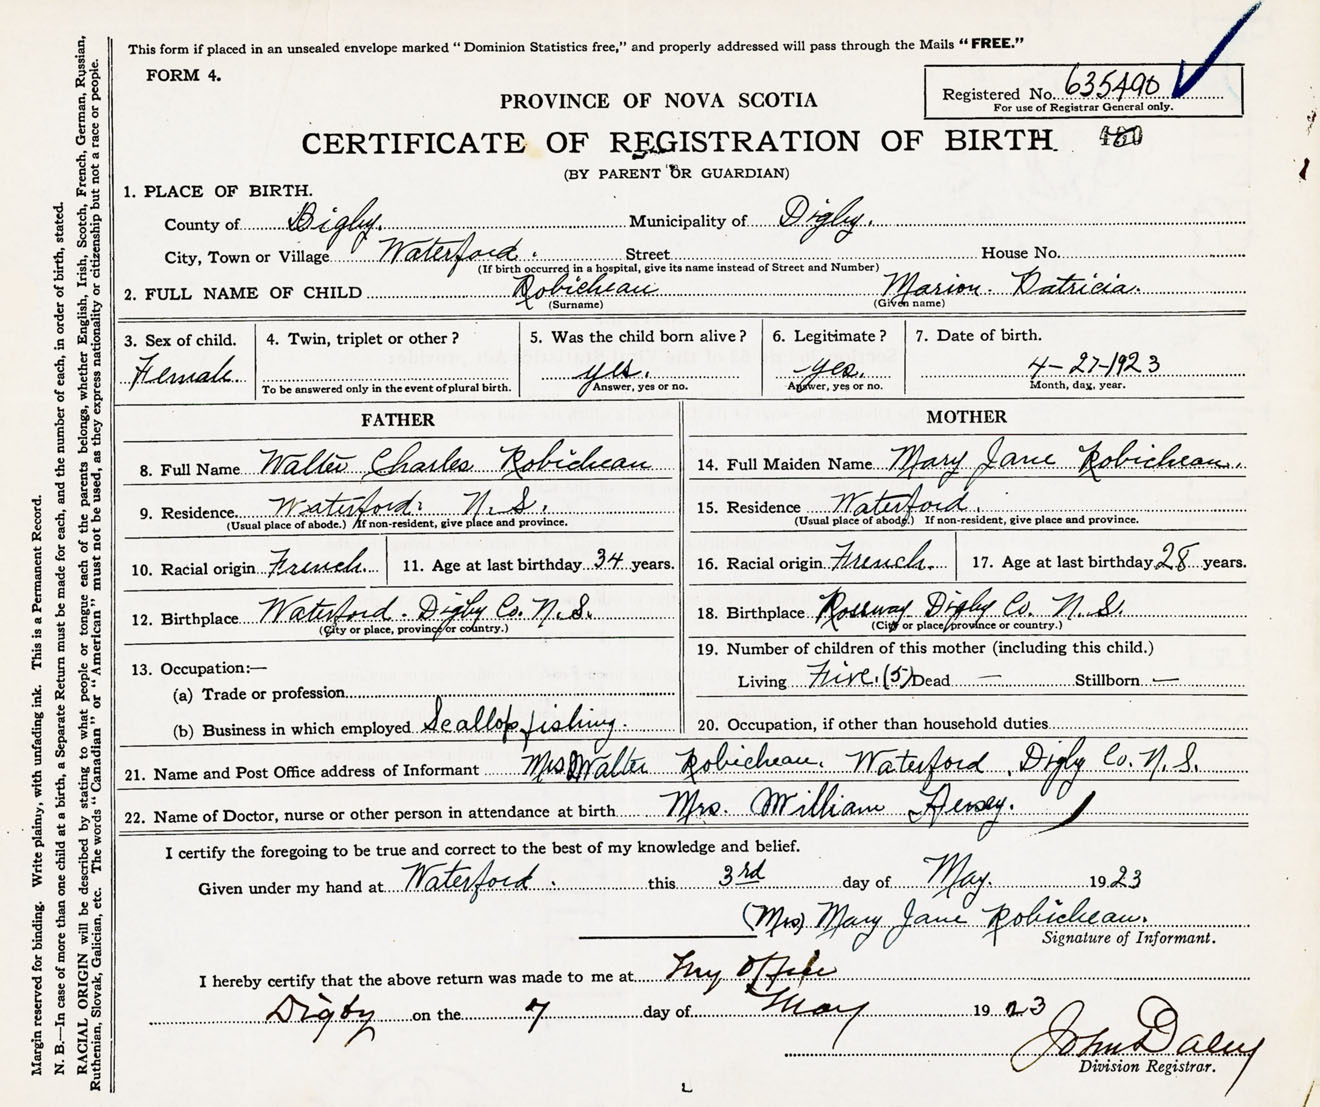 This form if placed in an unsealed envelope marked "Dominion Statistics free," and properly addressed will pass through the Mails "FREE."
FORM 4.
Registered No. 635490
For use of Registrar General only.
PROVINCE OF NOVA SCOTIA
CERTIFICATE OF REGISTRATION OF BIRTH
(BY PARENT OR GUARDIAN)
1. PLACE OF BIRTH.
County of Digby. Municipality of Digby.
City, Town or Village Waterford. Street House No.
(If birth occurred in a hospital, give its name instead of Street and Number)
2. FULL NAME OF CHILD Robicheau Marion Patricia.
(Surname) (Given name)
3. Sex of child. 4. Twin, triplet or other? 5. Was the child born alive? 6. Legitimate? 7. Date of birth.
Female. yes. yes. 4-27-1923
To be answered only in the event of plural birth. Answer, yes or no. Answer, yes or no. Month, day, year.
FATHER MOTHER
8. Full Name Walter Charles Robicheau 14. Full Maiden Name Mary Jane Robicheau.
9. Residence Waterford. N.S. 15. Residence Waterford.
(Usual place of abode.) If non-resident, give place and province. (Usual place of abode.) If non-resident, give place and province.
10. Racial origin French. 11. Age at last birthday 34 years. 16. Racial origin French. 17. Age at last birthday 28 years.
12. Birthplace Waterford. Digby Co. N.S. 18. Birthplace Rossway Digby Co. N.S.
(City or place, province or country.) (City or place, province or country.)
13. Occupation:— 19. Number of children of this mother (including this child.)
(a) Trade or profession Living Five. (5) Dead — Stillborn —
(b) Business in which employed Scallop fishing. 20. Occupation, if other than household duties
21. Name and Post Office address of Informant Mrs Walter Robicheau. Waterford, Digby Co. N.S.
22. Name of Doctor, nurse or other person in attendance at birth Mrs. William Hersey.
I certify the foregoing to be true and correct to the best of my knowledge and belief.
Given under my hand at Waterford. this 3rd day of May. 1923
(Mrs) Mary Jane Robicheau.
Signature of Informant.
I hereby certify that the above return was made to me at my office
Digby on the 7 day of May 1923
John Daley
Division Registrar.
Margin reserved for binding. Write plainly, with unfading ink. This is a Permanent Record.
N. B.—In case of more than one child at a birth, a Separate Return must be made for each, and the number of each, in order of birth, stated.
RACIAL ORIGIN will be described by stating to what people or tongue each of the parents belongs, whether English, Irish, Scotch, French, German, Russian,
Ruthenian, Slovak, Galician, etc. The words "Canadian" or "American" must not be used, as they express nationality or citizenship but not a race or people.